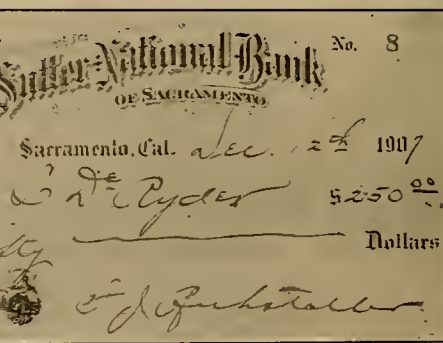 No. 8
Sutter National Bank
OF SACRAMENTO
Sacramento, Cal. Dec. 12th 1907
De Ryder $250 00
Dollars